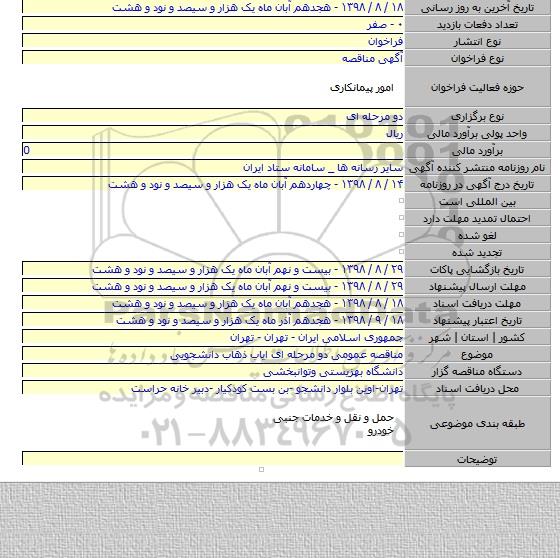 تاریخ آخرین به روز رسانی ۱۸ / ۸ / ۱۳۹۸ - هجدهم آبان ماه یک هزار و سیصد و نود و هشت
تعداد دفعات بازدید ۰ - صفر
نوع انتشار فراخوان
نوع فراخوان آگهی مناقصه
حوزه فعالیت فراخوان امور پیمانکاری
نوع برگزاری دو مرحله ای
واحد پولی برآورد مالی ریال
برآورد مالی 0
نام روزنامه منتشر کننده آگهی سایر رسانه ها _ سامانه ستاد ایران
تاریخ درج آگهی در روزنامه ۱۴ / ۸ / ۱۳۹۸ - چهاردهم آبان ماه یک هزار و سیصد و نود و هشت
بین المللی است
احتمال تمدید مهلت دارد
لغو شده
تجدید شده
تاریخ بازگشایی پاکات ۲۹ / ۸ / ۱۳۹۸ - بیست و نهم آبان ماه یک هزار و سیصد و نود و هشت
مهلت ارسال پیشنهاد ۲۹ / ۸ / ۱۳۹۸ - بیست و نهم آبان ماه یک هزار و سیصد و نود و هشت
مهلت دریافت اسناد ۱۸ / ۸ / ۱۳۹۸ - هجدهم آبان ماه یک هزار و سیصد و نود و هشت
تاریخ اعتبار پیشنهاد ۱۸ / ۹ / ۱۳۹۸ - هجدهم آذر ماه یک هزار و سیصد و نود و هشت
کشور | استان | شهر جمهوری اسلامی ایران - تهران - تهران
موضوع مناقصه عمومی دو مرحله ای ایاب ذهاب دانشجویی
دستگاه مناقصه گزار دانشگاه بهزیستی وتوانبخشی
محل دریافت اسناد تهران-اوین بلوار دانشجو -بن بست کودکیار -دبیر خانه حراست
طبقه بندی موضوعی حمل و نقل و خدمات جنبی
خودرو
توضیحات
ParsNamadData
پایگاه اطلاع رسانی مناقصه و مزایده
۰۲۱-۸۸۳۴۹۶۷۰-۵